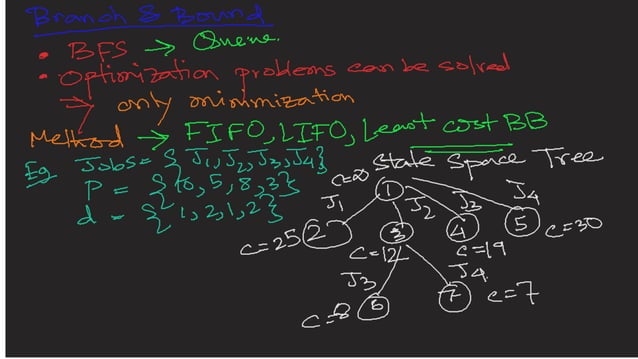 Branch & Bound
• BFS → Queue.
• Optimization problems can be solved
⇒ only minimization
Method → FIFO, LIFO, Least cost BB
Eg Jobs = {J1, J2, J3, J4}
P = {10, 5, 8, 3}
d = {1, 2, 1, 2}
State Space Tree
C=∞ 1
J1 J2 J3 J4
C=25 2 3 4 5 C=30
C=12 C=19
J3 J4
C=8 6 7 C=7